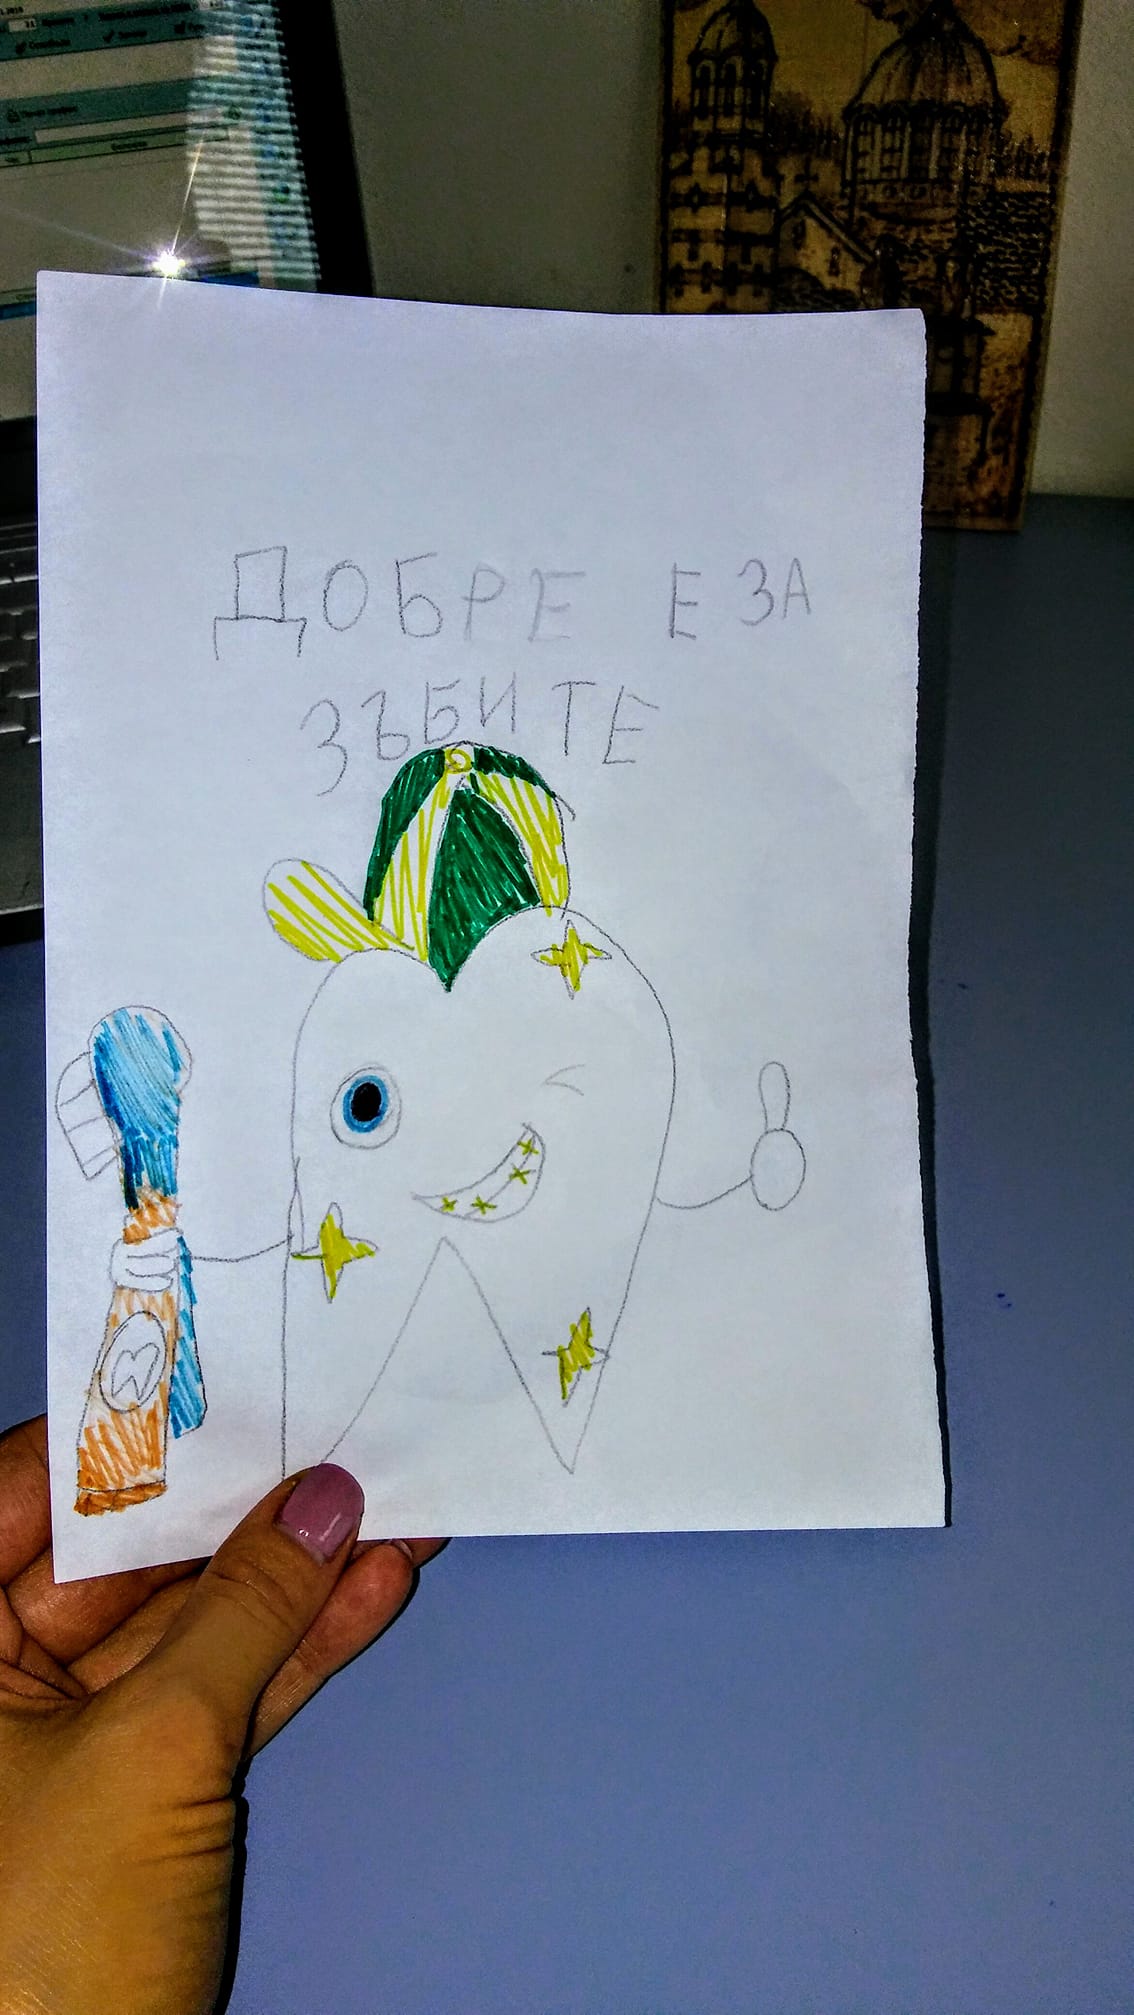 ДОБРЕ Е ЗА
ЗЪБИТЕ